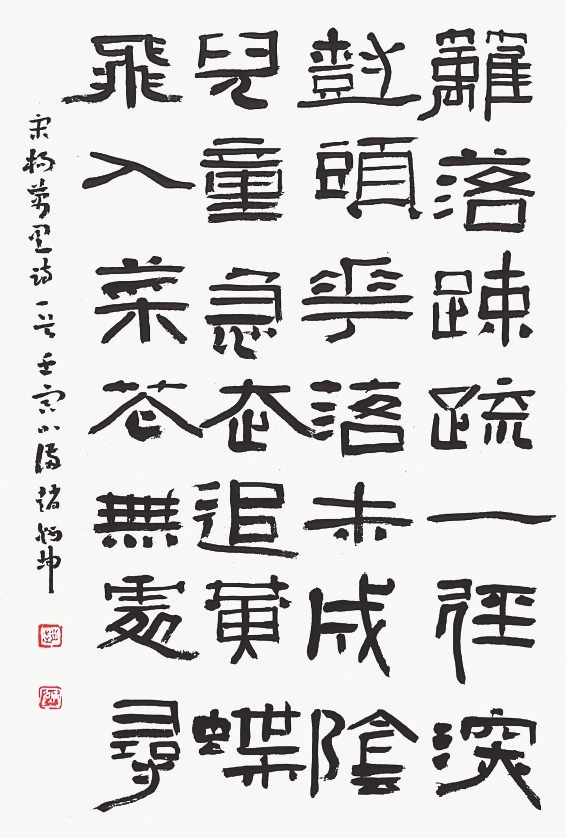 籬落踈疏一徑深
樹頭華落未成陰
兒童急走追黃蝶
飛入菜花無處尋
宋楊萬里詩一首壬寅小滿趙坤